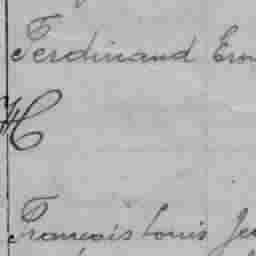 Ferdinand Ern
H
François Louis Je